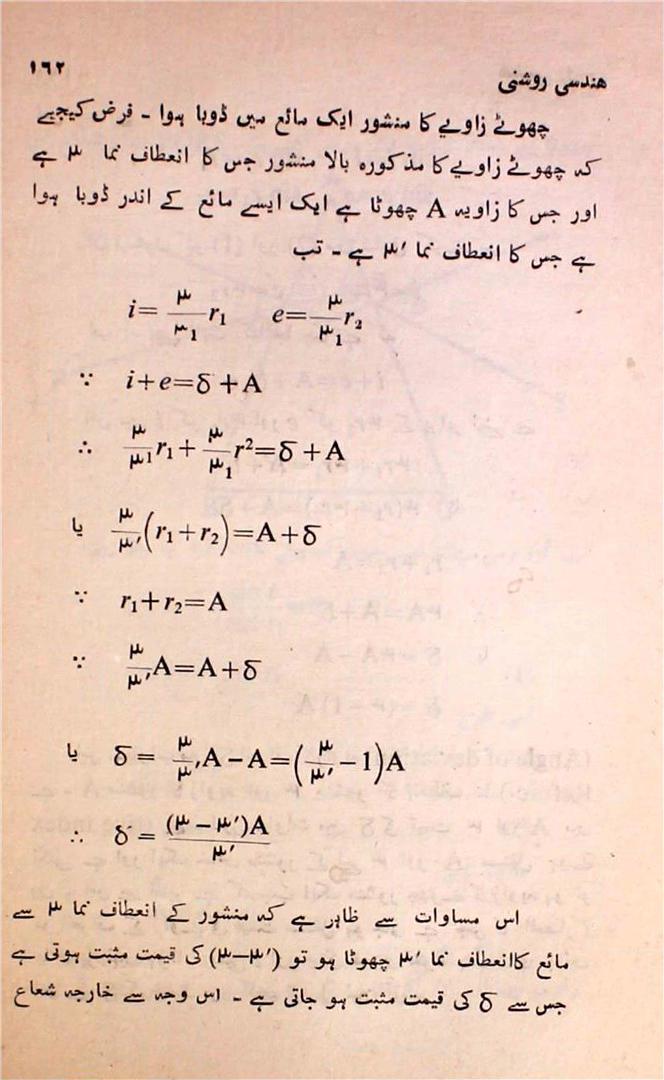 ۱۶۲
هندسی روشنی
چھوٹے زاویے کا منشور ایک مائع میں ڈوبا ہوا - فرض کیجیے
کہ چھوٹے زاویے کا مذکورہ بالا منشور جس کا انعطاف نما μ ہے
اور جس کا زاویہ A چھوٹا ہے ایک ایسے مائع کے اندر ڈوبا ہوا
ہے جس کا انعطاف نما μ′ ہے - تب
i= μ/μ₁ r₁    e= μ/μ₁ r₂
∵ i+e=δ+A
∴ μ/μ1 r₁+ μ/μ₁ r²=δ+A
یا μ/μ′ (r₁+r₂)=A+δ
∵ r₁+r₂=A
∵ μ/μ′ A=A+δ
یا δ= μ/μ′ A−A=(μ/μ′ −1)A
∴ δ= (μ−μ′)A/μ′
اس مساوات سے ظاہر ہے کہ منشور کے انعطاف نما μ سے
مائع کا انعطاف نما μ′ چھوٹا ہو تو (μ−μ′) کی قیمت مثبت ہوتی ہے
جس سے δ کی قیمت مثبت ہو جاتی ہے - اس وجہ سے خارجہ شعاع